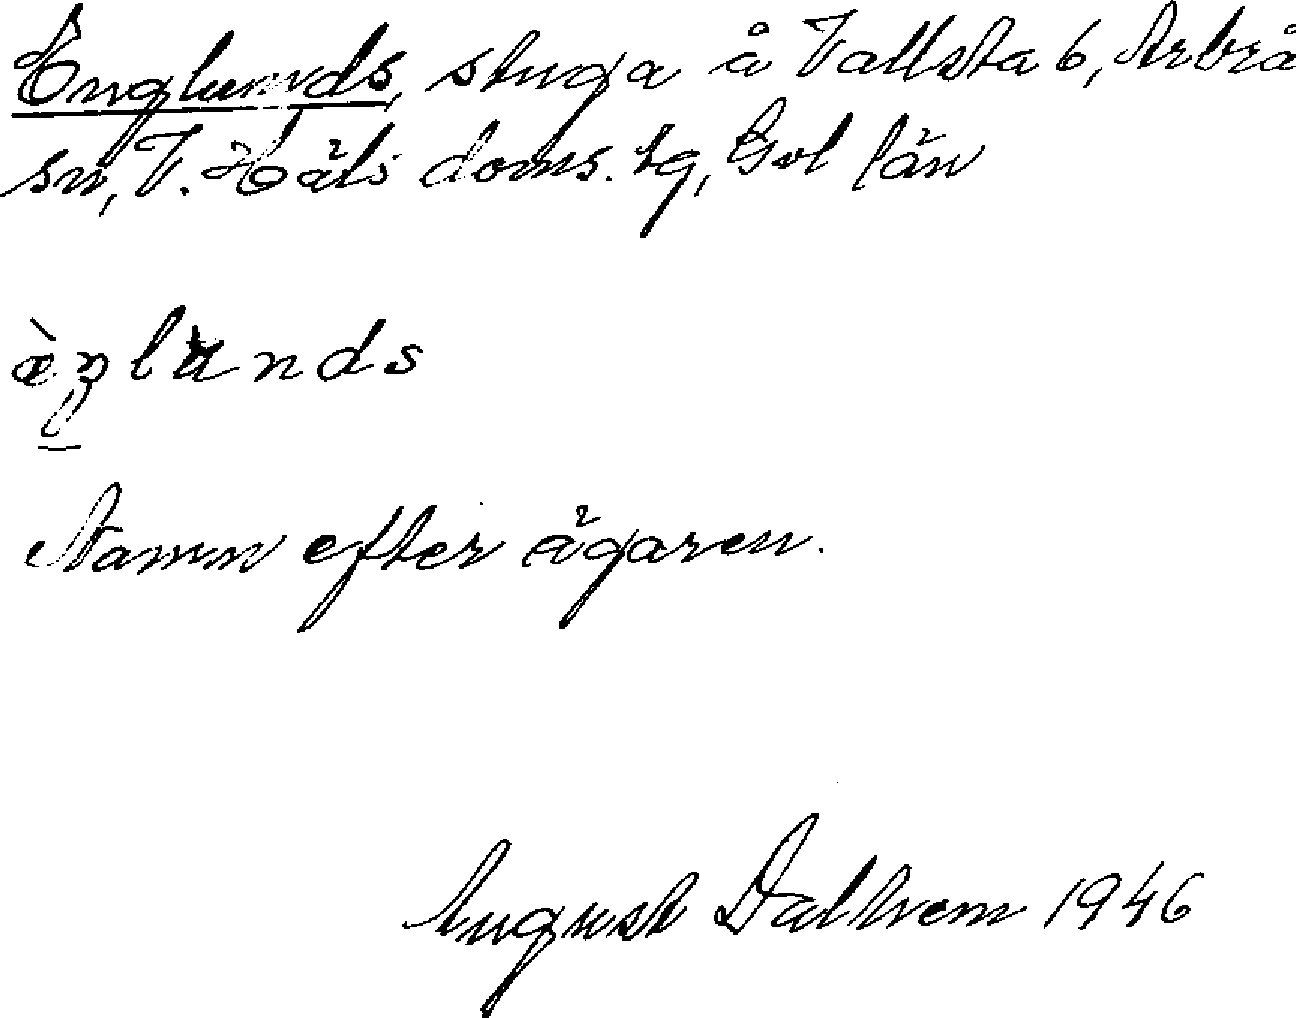 Englunds, stuga å Vallsta 6, Arbrå
sn, V. Häls doms. tg, Gvl län
Namn efter ägaren.
August Dalhem 1946